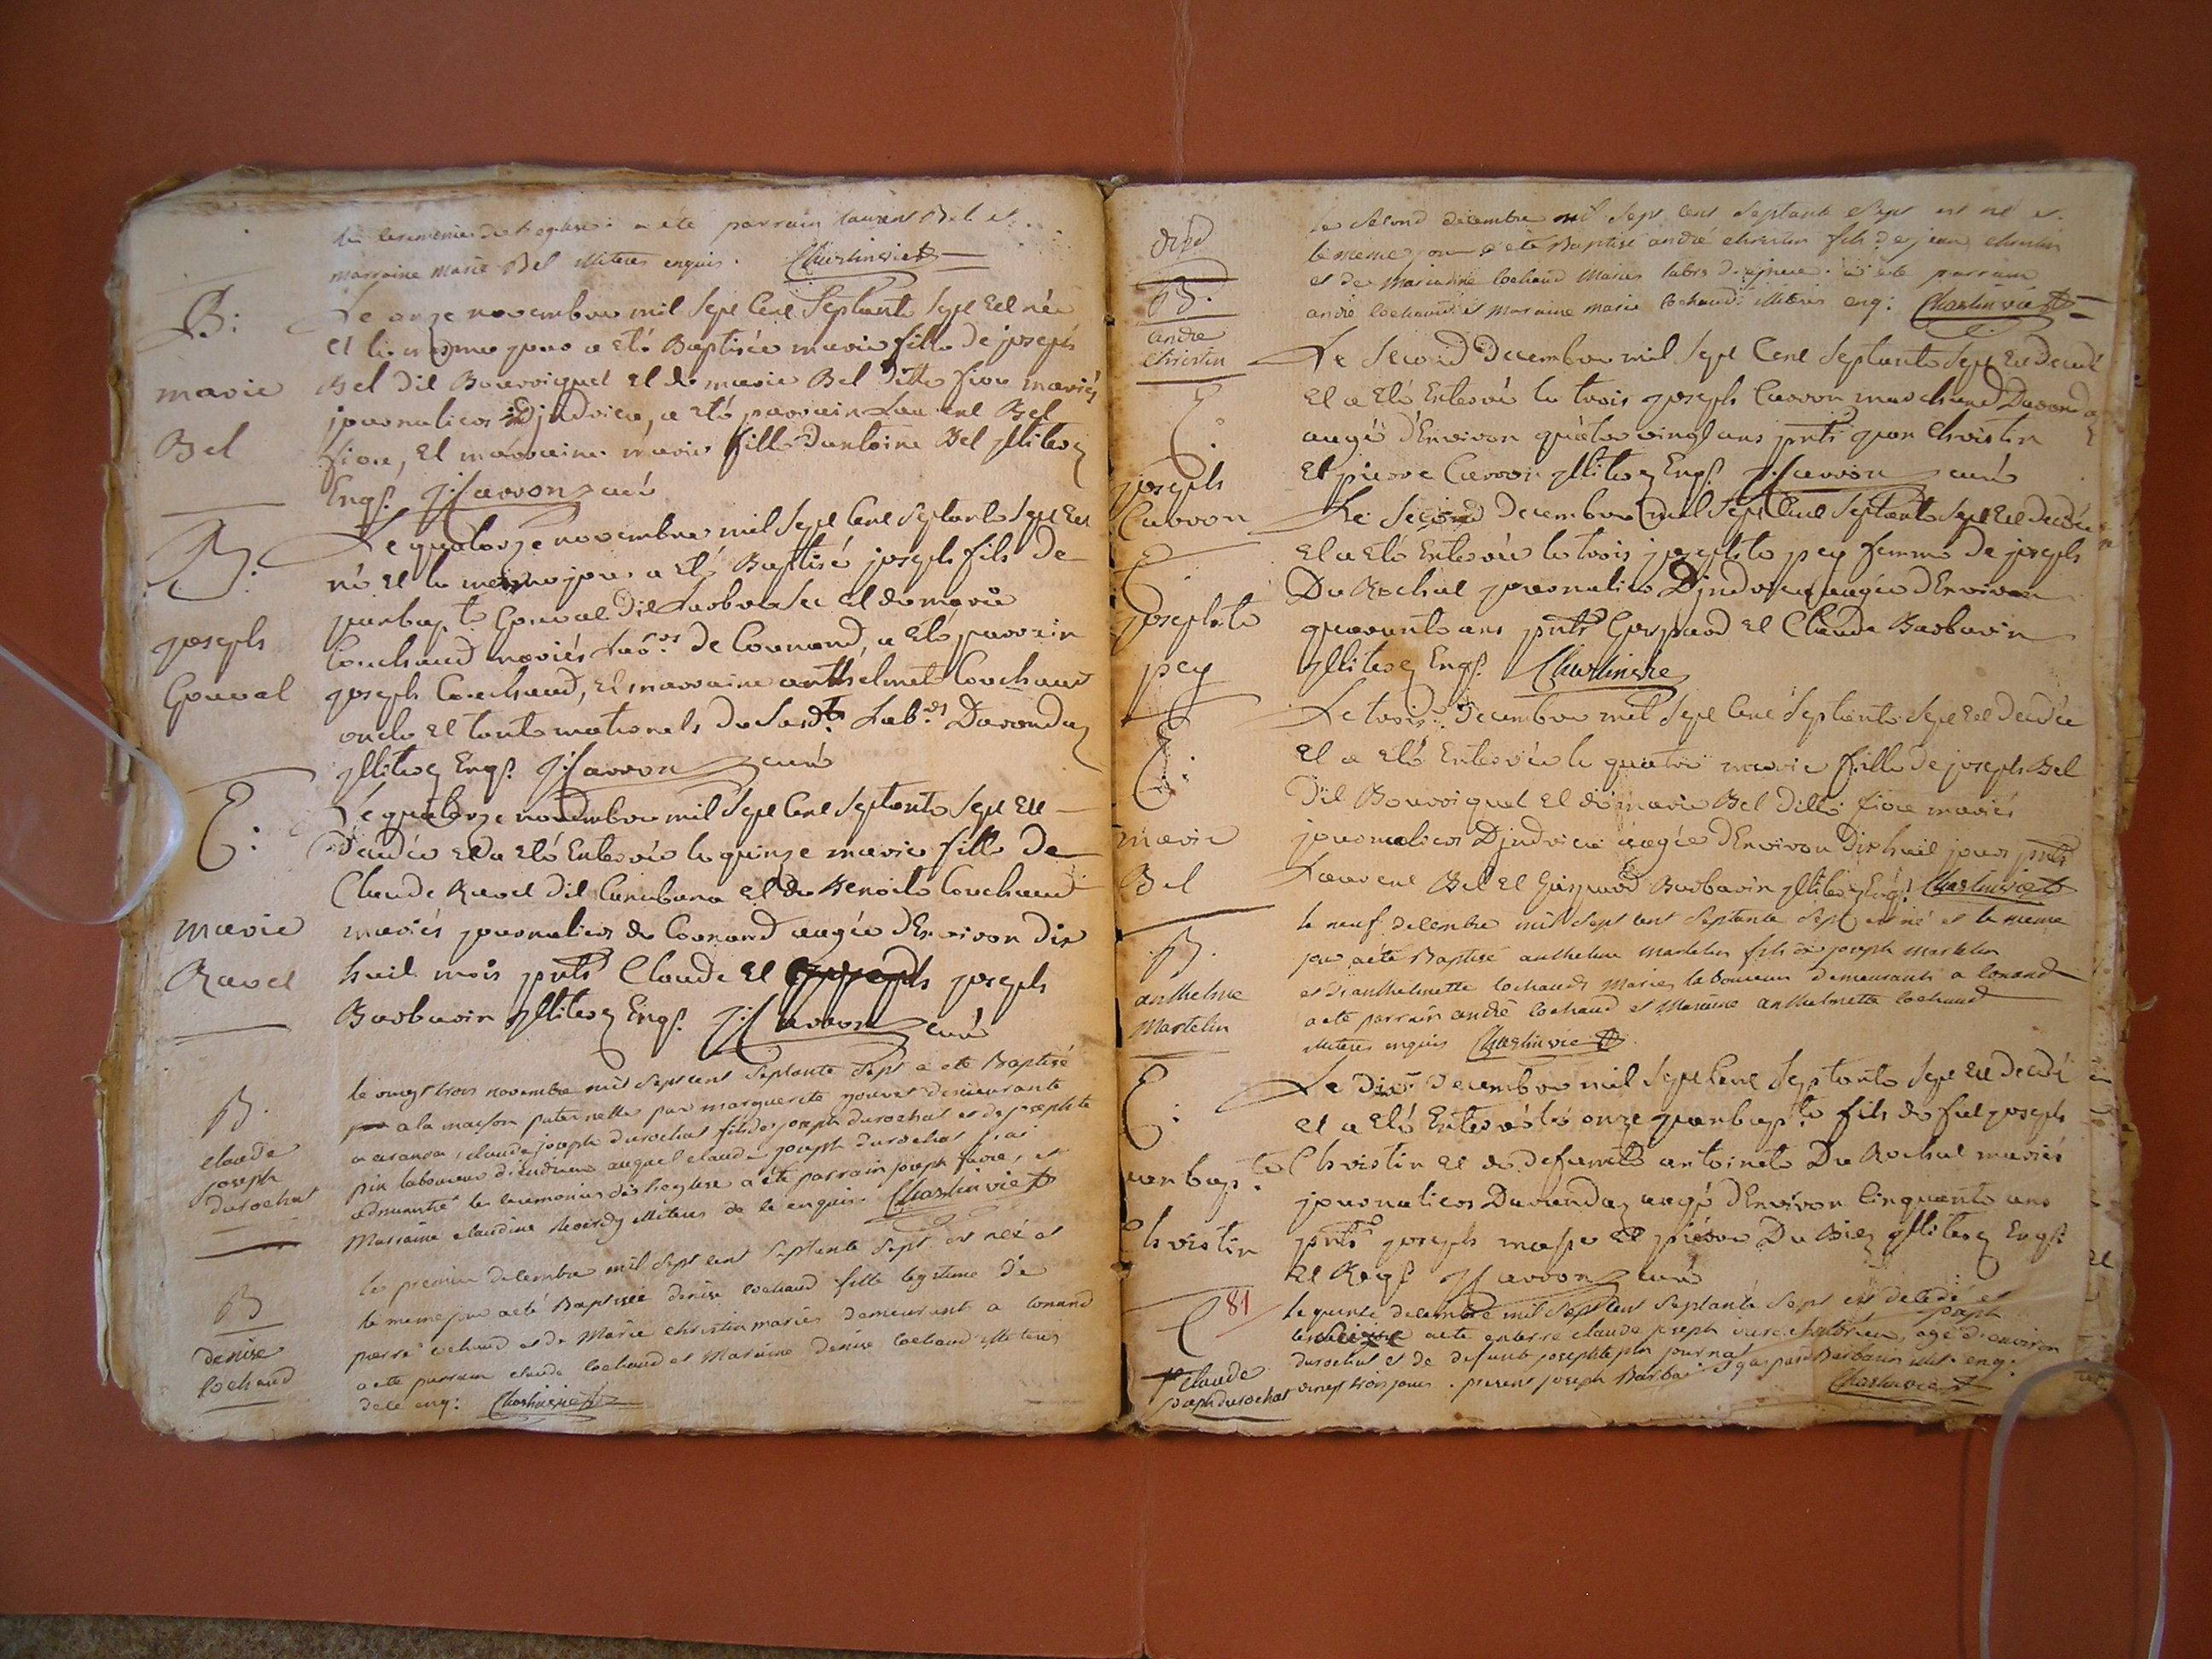 les ceremonies de l'eglise. a ete parrain laurent Bel et
marraine marie Bel illiteres enquis. Charlinvie
B:
marie
Bel
Le onze novembre mil sept cent septante sept est née
et le mesme jour a eté Baptisée marie fille de joseph
Bel dit Bourriquet et de marie Bel ditte fiore mariés
journaliers Djndrieu, a eté parrain Laurent Bel
fiore, et marraine marie fille dantoine Bel jlliterez
Enqs. J: Carron curé
B:
joseph
Gonval
Le quatorze novembre mil sept cent septante sept est
né et le mesme jour a eté Baptisé joseph fils de
janbapte Gonval dit et de marie
Couchaud mariés Labrs de Connand, a eté parrain
joseph Couchaud, et marraine anthelmete Couchaud
oncle et tante maternels Labrs Darandaz
jlliterez Enqs. J: Carron curé
E:
marie
Ravet
Le quatorze novembre mil sept cent septante sept est
décédée et a eté Enterrée le quinze marie fille de
Claude Ravet dit et de Benoite Couchaud
mariés journaliers de Connand augée dEnviron dix
huit mois pnts Claude et joseph
Barbarin jlliterez Enqs. J: Carron curé
B.
claude
joseph
durochat
le vingt trois novembre mil sept cent septante sept a ete Baptisé
a la maison paternelle par marguerite demeurante
a aranda, claude joseph durochat fils de joseph durochat et de josephte
laboureur dindrieu auquel claude joseph durochat j'ai
administré les ceremonies de l'eglise a été parrain joseph et
Marraine claudine illiteres de ce enquis. Charlinvie
B
denise
cochaud
le premier decembre mil sept cent septante sept est née et
le meme jour a eté Baptisée denise cochaud fille legitime de
pierre cochaud et de Marie christin mariés demeurant a conand
a ete parrain claude cochaud et Marraine denise cochaud illiteres
de ce enq: Charlinvie
B.
andre
christin
le second decembre mil sept cent septante sept est né et
le meme jour a été Baptisé andré christin fils de jean christin
et de marianne cochaud Mariés labrs a été parrain
andré cochaud et maraine marie cochaud illiteres enq: Charlinvie
E:
joseph
Carron
Le second Decembre mil sept cent septante sept est decedé
et a eté Enterré le trois joseph Carron marchand Darandaz
augé dEnviron quatre vingt ans pnts Christin
et pierre Carron jlliterez Enqs. J: Carron curé
E
josephte
pey
Le second Decembre mil sept cent septante sept est decedée
et a eté Enterrée le trois josephte pey femme de joseph
Du Rochat journalier Djndrieu augée dEnviron
quarante ans pnts Gaspard et Claude Barbarin
jlliterez Enqs. Charlinvie
E:
marie
Bel
Le trois Decembre mil sept cent septante sept est decedée
et a eté Enterrée le quatre marie fille de joseph Bel
dit Bourriquet et de marie Bel ditte fiore mariés
journaliers Djndrieu augée dEnviron dixhuit jours pnts
Laurent Bel et Gaspard Barbarin jlliterez Enqs. Charlinvie
B.
anthelme
Martelin
le neuf decembre mil sept cent septante sept est né et le meme
jour a été Baptisé anthelme martelin fils de joseph martelin
et d'anthelmette cochaud Mariés laboureurs demeurants a conand
a ete parrain andré cochaud et Maraine anthelmette cochaud
illiteres enquis Charlinvie
E:
janbapte
Christin
Le dix Decembre mil sept cent septante sept est decedé
et a eté Enterré le onze janbapte fils de fut joseph
Christin et de defunte antoinete Du Rochat mariés
journaliers Darandaz augé dEnviron cinquante ans
pnts joseph et pierre jlliterez Enqs
et Reqs. J: Carron curé
E 81
claude
joseph durochat
le quinze decembre mil sept cent septante sept est decedé et
le seize a ete enterré claude joseph joseph
durochat et de defunte josephte journal agé denviron
vingt trois jours. present joseph Barbarin et gaspard Barbarin illit. enq.
Charlinvie